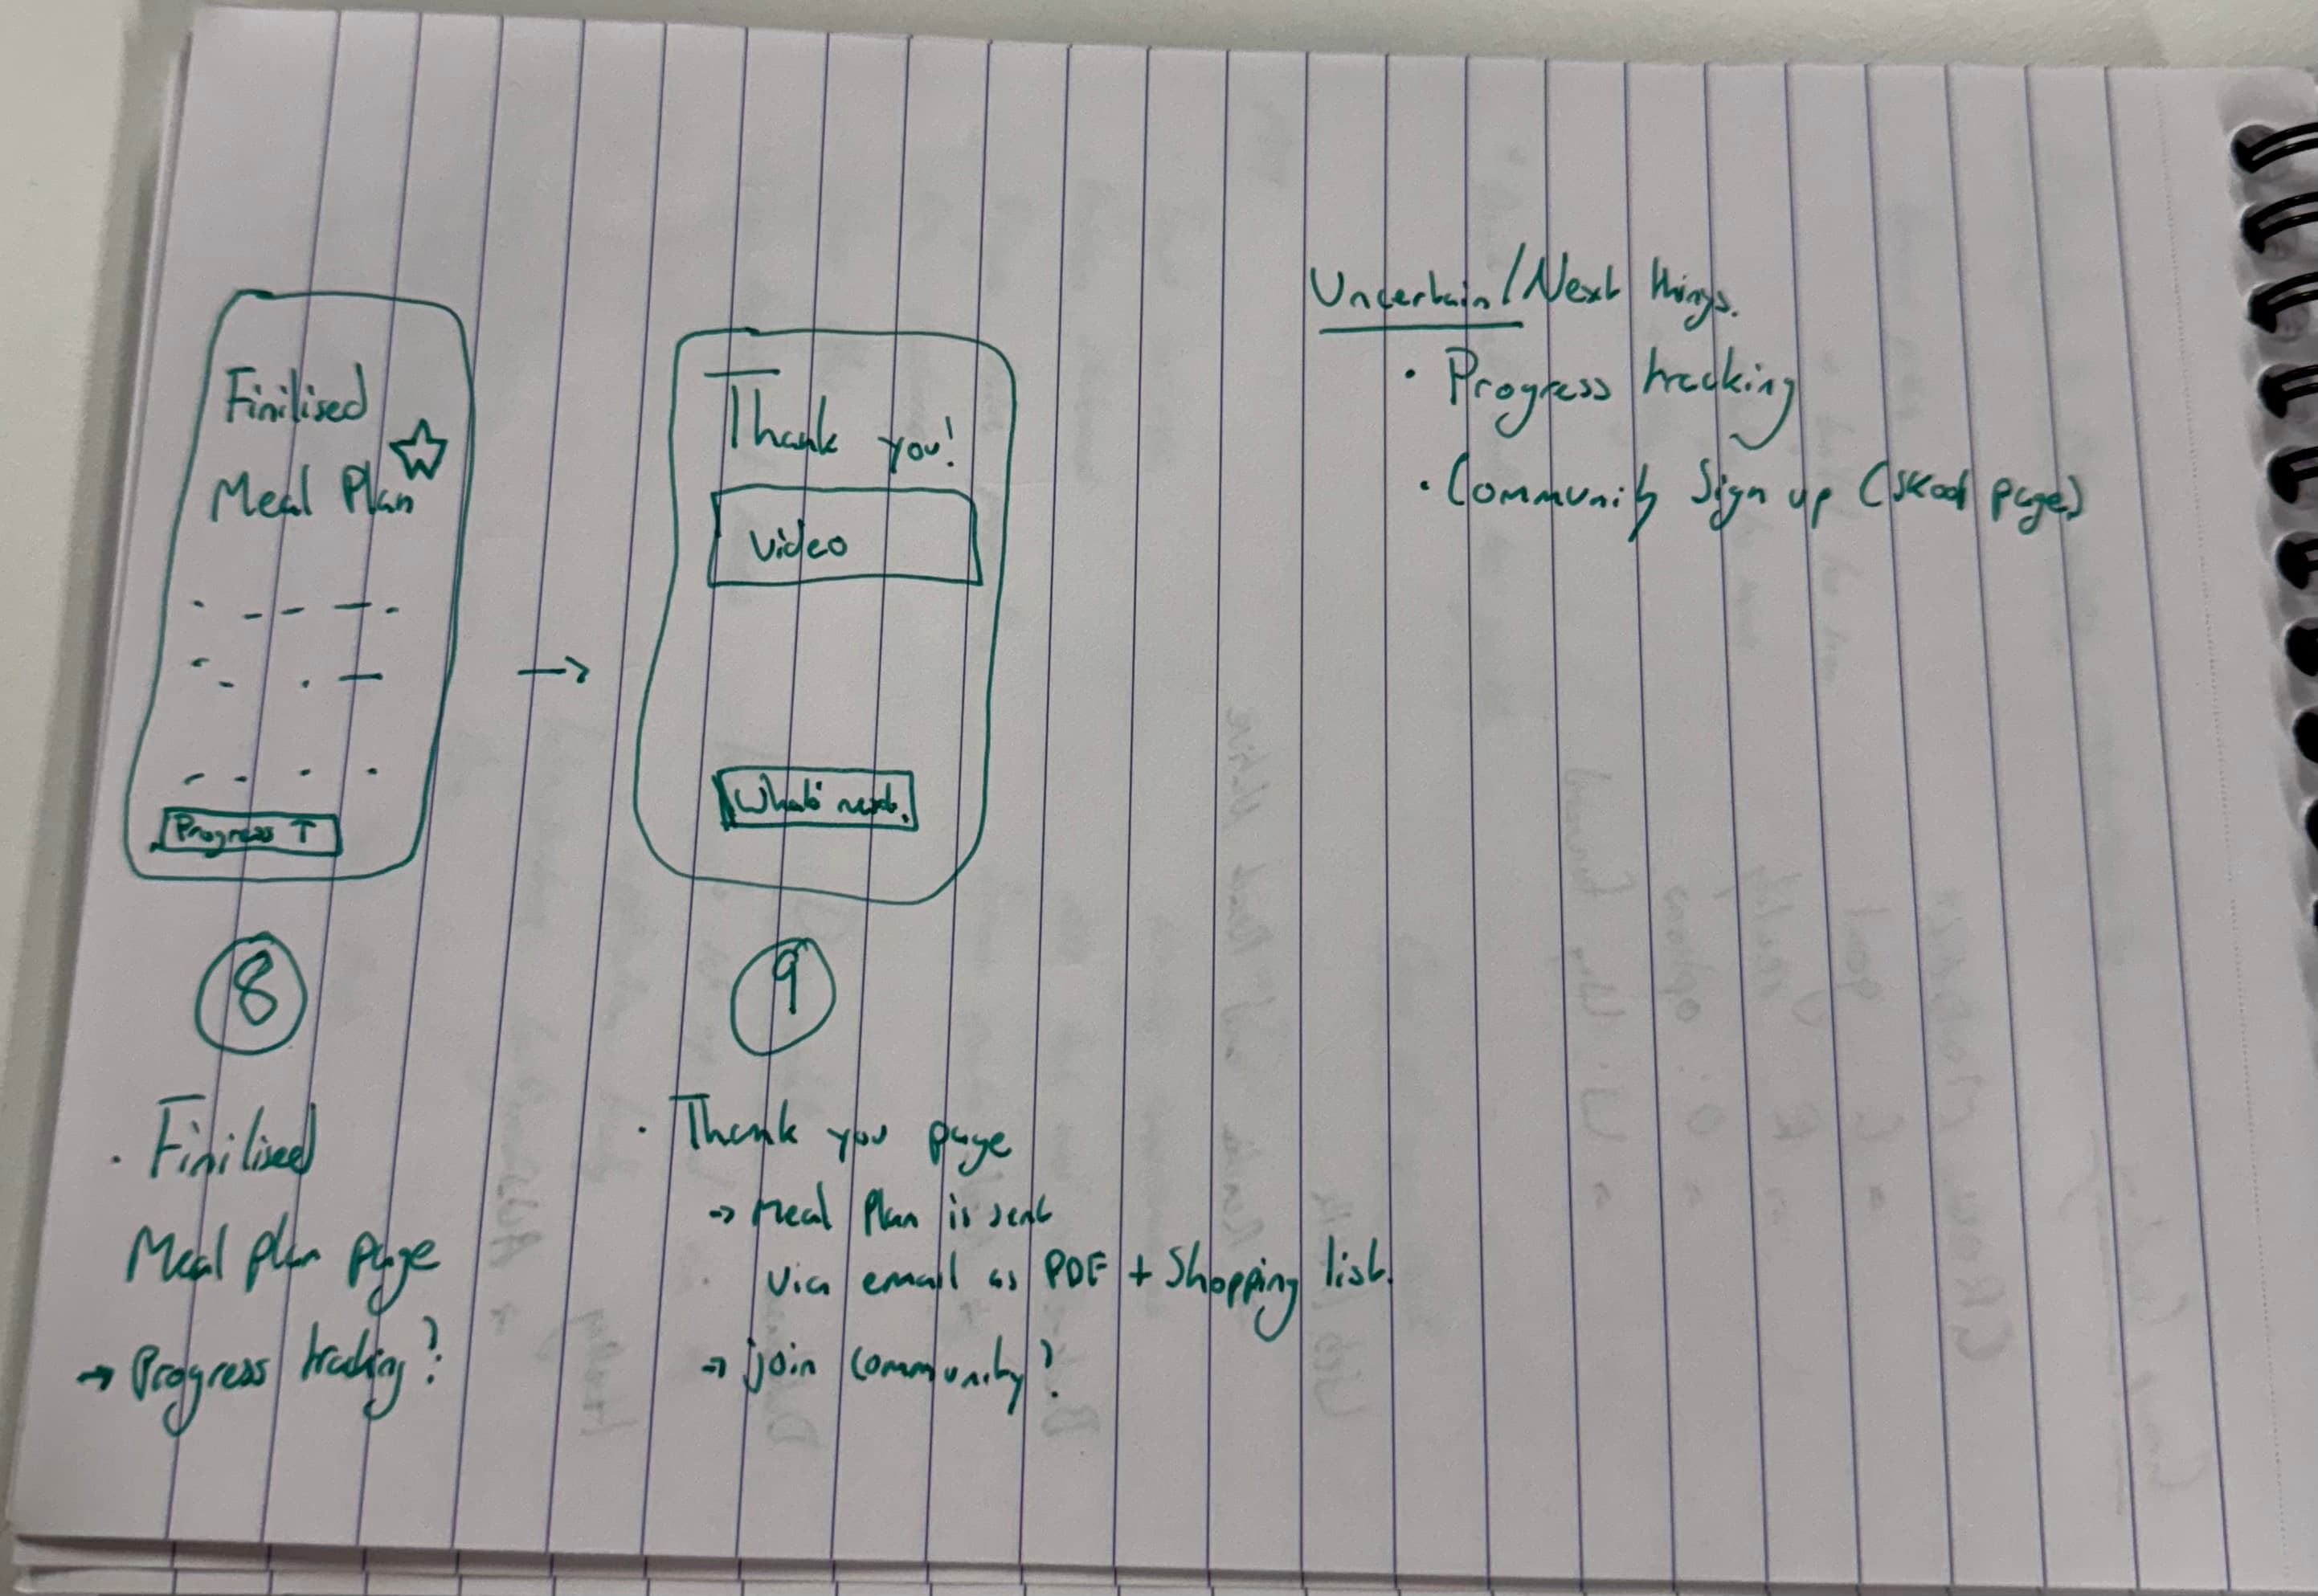 Finilised
Meal Plan
Progress T
8
• Finilised
Meal plan page
→ Progress tracking?
Thank you!
Video
What's next.
9
• Thank you page
→ Meal Plan is sent
via email as PDF + Shopping list.
→ join community?
Uncertain/Next things.
• Progress tracking
• Community Sign up (Skool page)